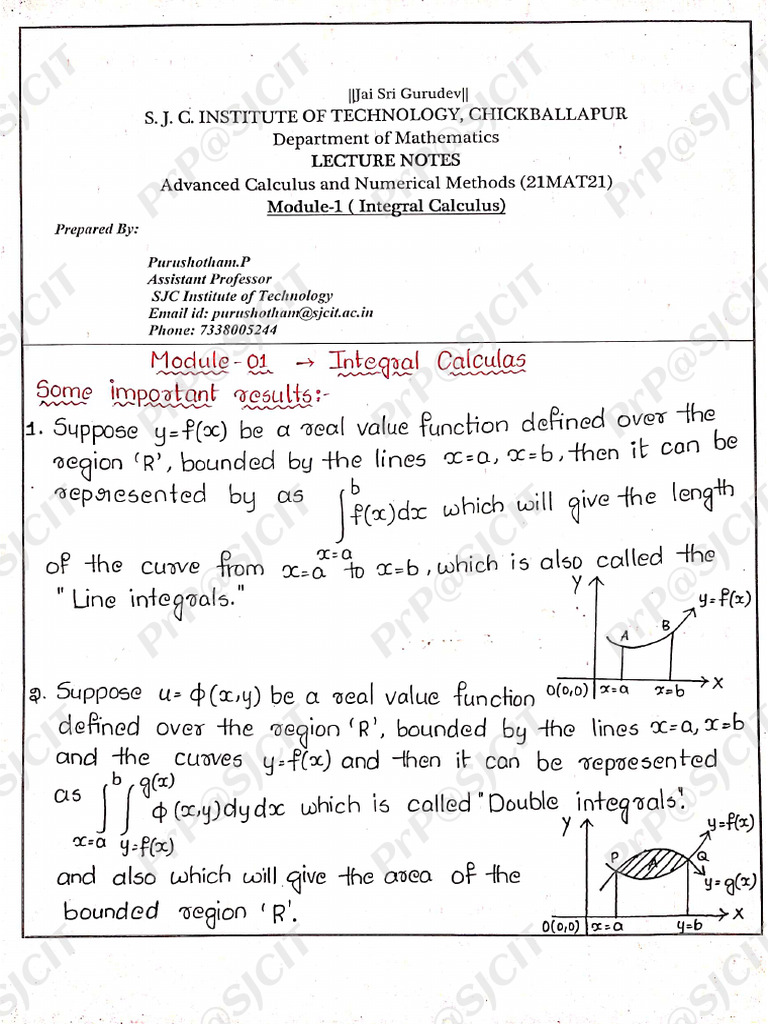 ||Jai Sri Gurudev||
S. J. C. INSTITUTE OF TECHNOLOGY, CHICKBALLAPUR
Department of Mathematics
LECTURE NOTES
Advanced Calculus and Numerical Methods (21MAT21)
Module-1 ( Integral Calculus)
Prepared By:
Purushotham.P
Assistant Professor
SJC Institute of Technology
Email id: purushotham@sjcit.ac.in
Phone: 7338005244
Module-01 → Integral Calculas
Some important results:-
1. Suppose y=f(x) be a real value function defined over the
region 'R', bounded by the lines x=a, x=b, then it can be
represented by as ∫_{x=a}^{b} f(x)dx which will give the length
of the curve from x=a to x=b, which is also called the
"Line integrals."
Y
y=f(x)
A B
O(0,0) x=a x=b X
2. Suppose u= ϕ(x,y) be a real value function
defined over the region 'R', bounded by the lines x=a, x=b
and the curves y=f(x) and then it can be represented
as ∫_{x=a}^{b} ∫_{y=f(x)}^{g(x)} ϕ(x,y)dydx which is called "Double integrals".
and also which will give the area of the
bounded region 'R'.
Y
y=f(x)
P A Q
y=g(x)
O(0,0) x=a y=b X
PrP@SJCIT